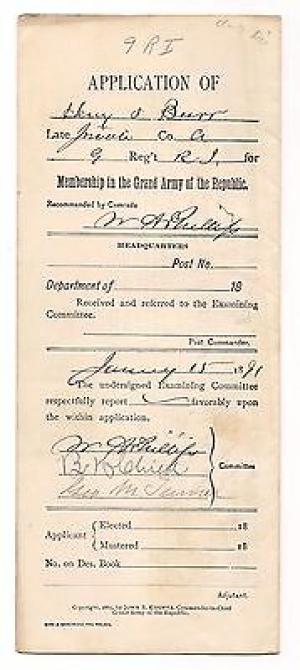 9 R I
APPLICATION OF
Henry S Burr
Late Private Co A
9 Reg't R. I. for
Membership in the Grand Army of the Republic.
Recommended by Comrade
W A Phillips
HEADQUARTERS
Post No.
Department of 18
Received and referred to the Examining
Committee.
Post Commander.
January 15 1891
The undersigned Examining Committee
respectfully report favorably upon
the within application.
W A Phillips
B
Geo M
Committee
Applicant
Elected 18
Mustered 18
No. on Des. Book
Adjutant.
Commander-in-Chief
Grand Army of the Republic.